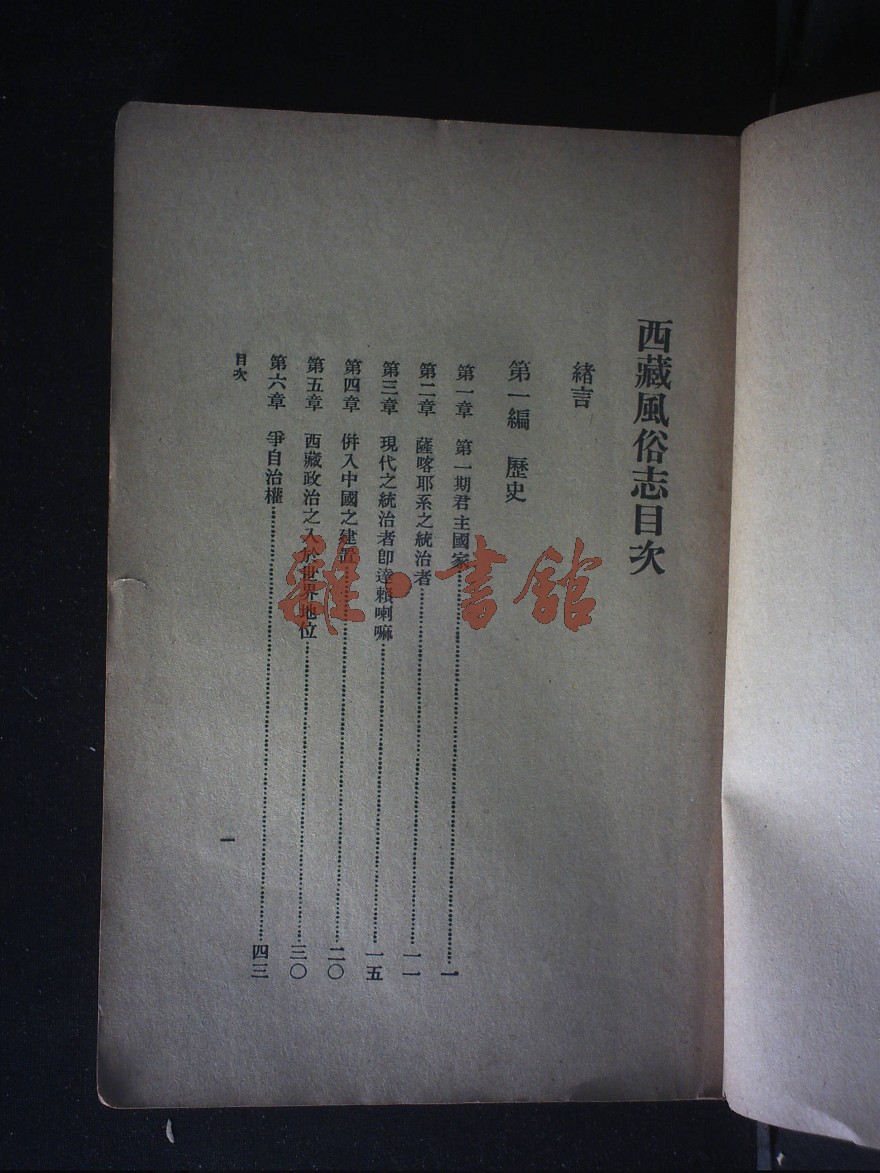 西藏風俗志目次
緒言
第一編 歷史
第一章 第一期君主國家……一
第二章 薩喀耶系之統治者……一一
第三章 現代之統治者卽達賴喇嘛……一五
第四章 併入中國之建置……二〇
第五章 西藏政治之入於世界地位……三〇
第六章 爭自治權……四三
目次
一
雜·書館